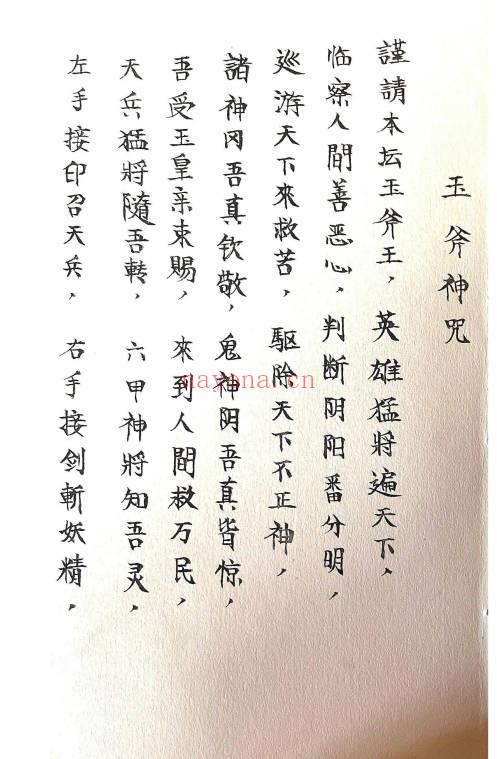 玉斧神咒
謹請本坛玉斧王，英雄猛将遍天下、
临察人間善恶心，判断阴阳番分明，
巡游天下來救苦，驅除天下不正神，
諸神冈吾真钦敬，鬼神阴吾真皆惊，
吾受玉皇亲束賜，來到人間救万民，
天兵猛將隨吾轉，六甲神將知吾灵，
左手接印召天兵，右手接剑斬妖精，
nayona.cn